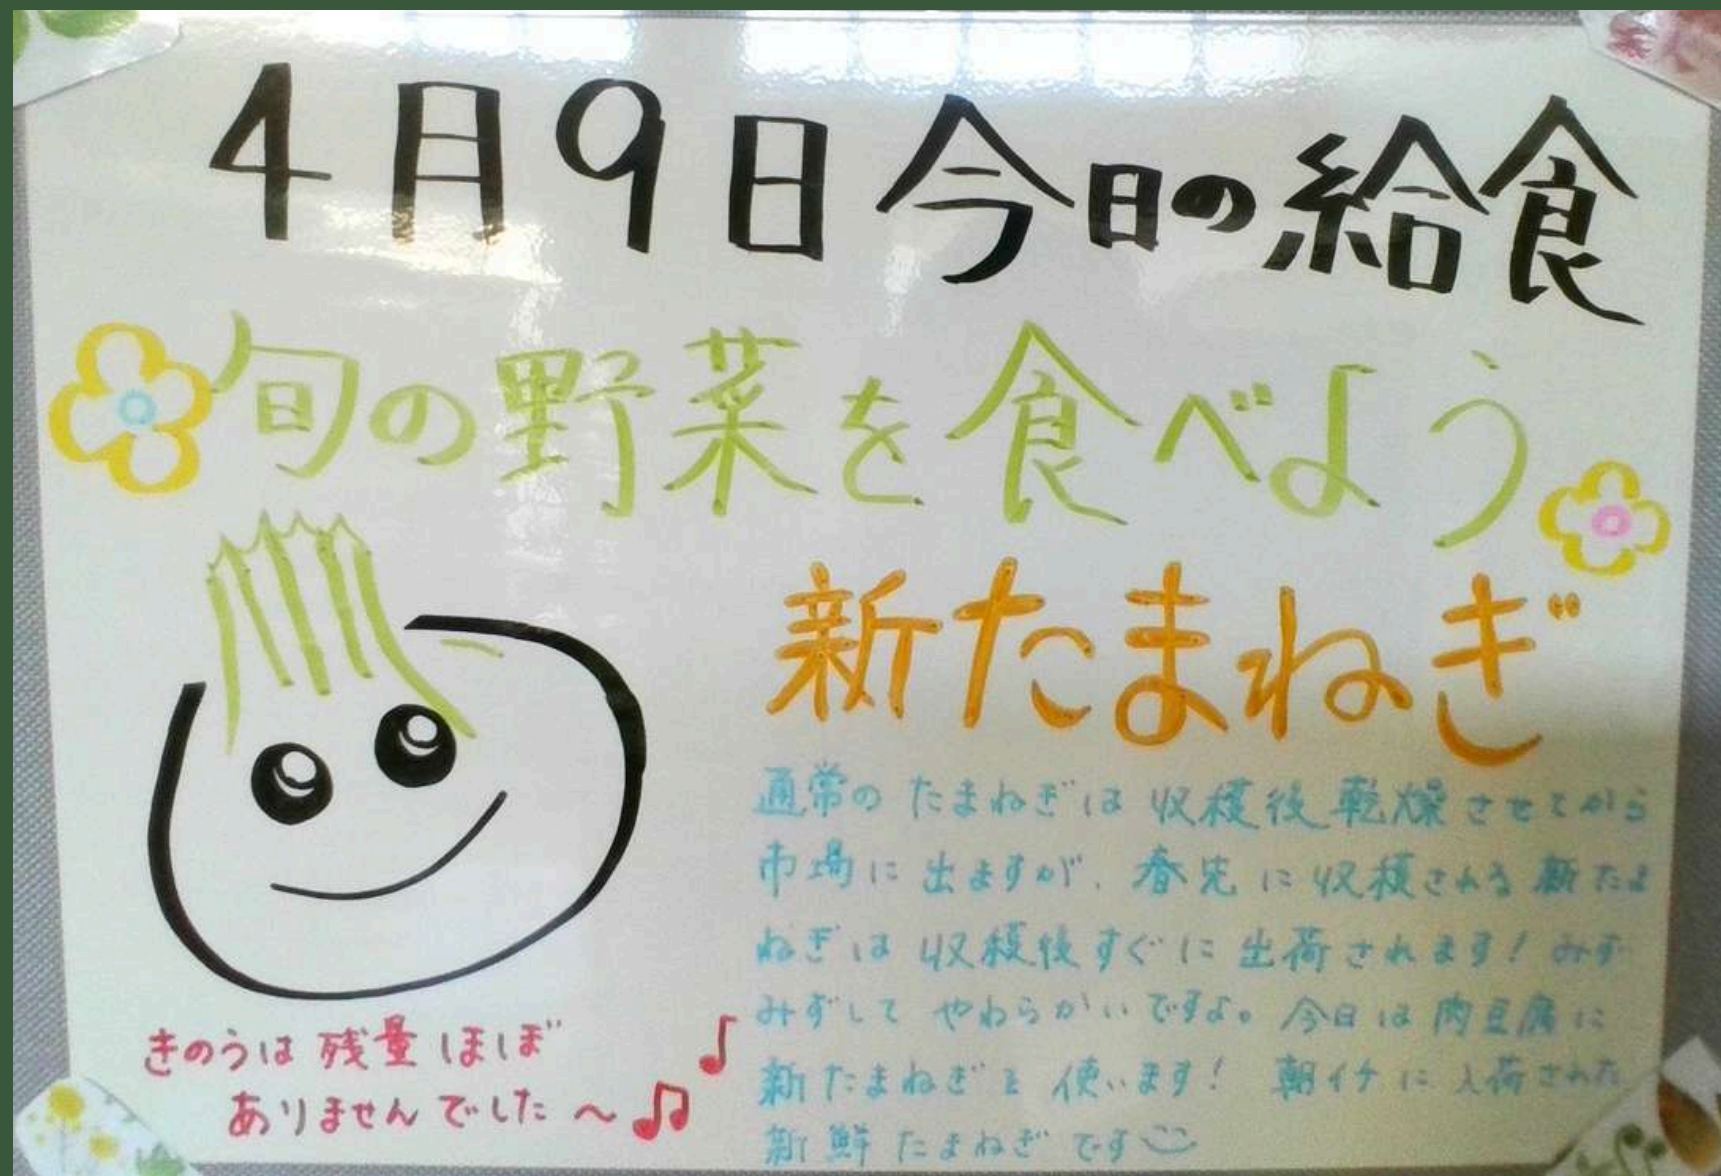 4月9日今日の給食
旬の野菜を食べよう
新たまねぎ
通常のたまねぎは収穫後乾燥させてから
市場に出ますが、春先に収穫される新たま
ねぎは収穫後すぐに出荷されます！みず
みずしてやわらかいですよ。今日は肉豆腐に
新たまねぎを使います！朝イチに入荷された
新鮮たまねぎです
きのうは残量ほぼ
ありませんでした〜